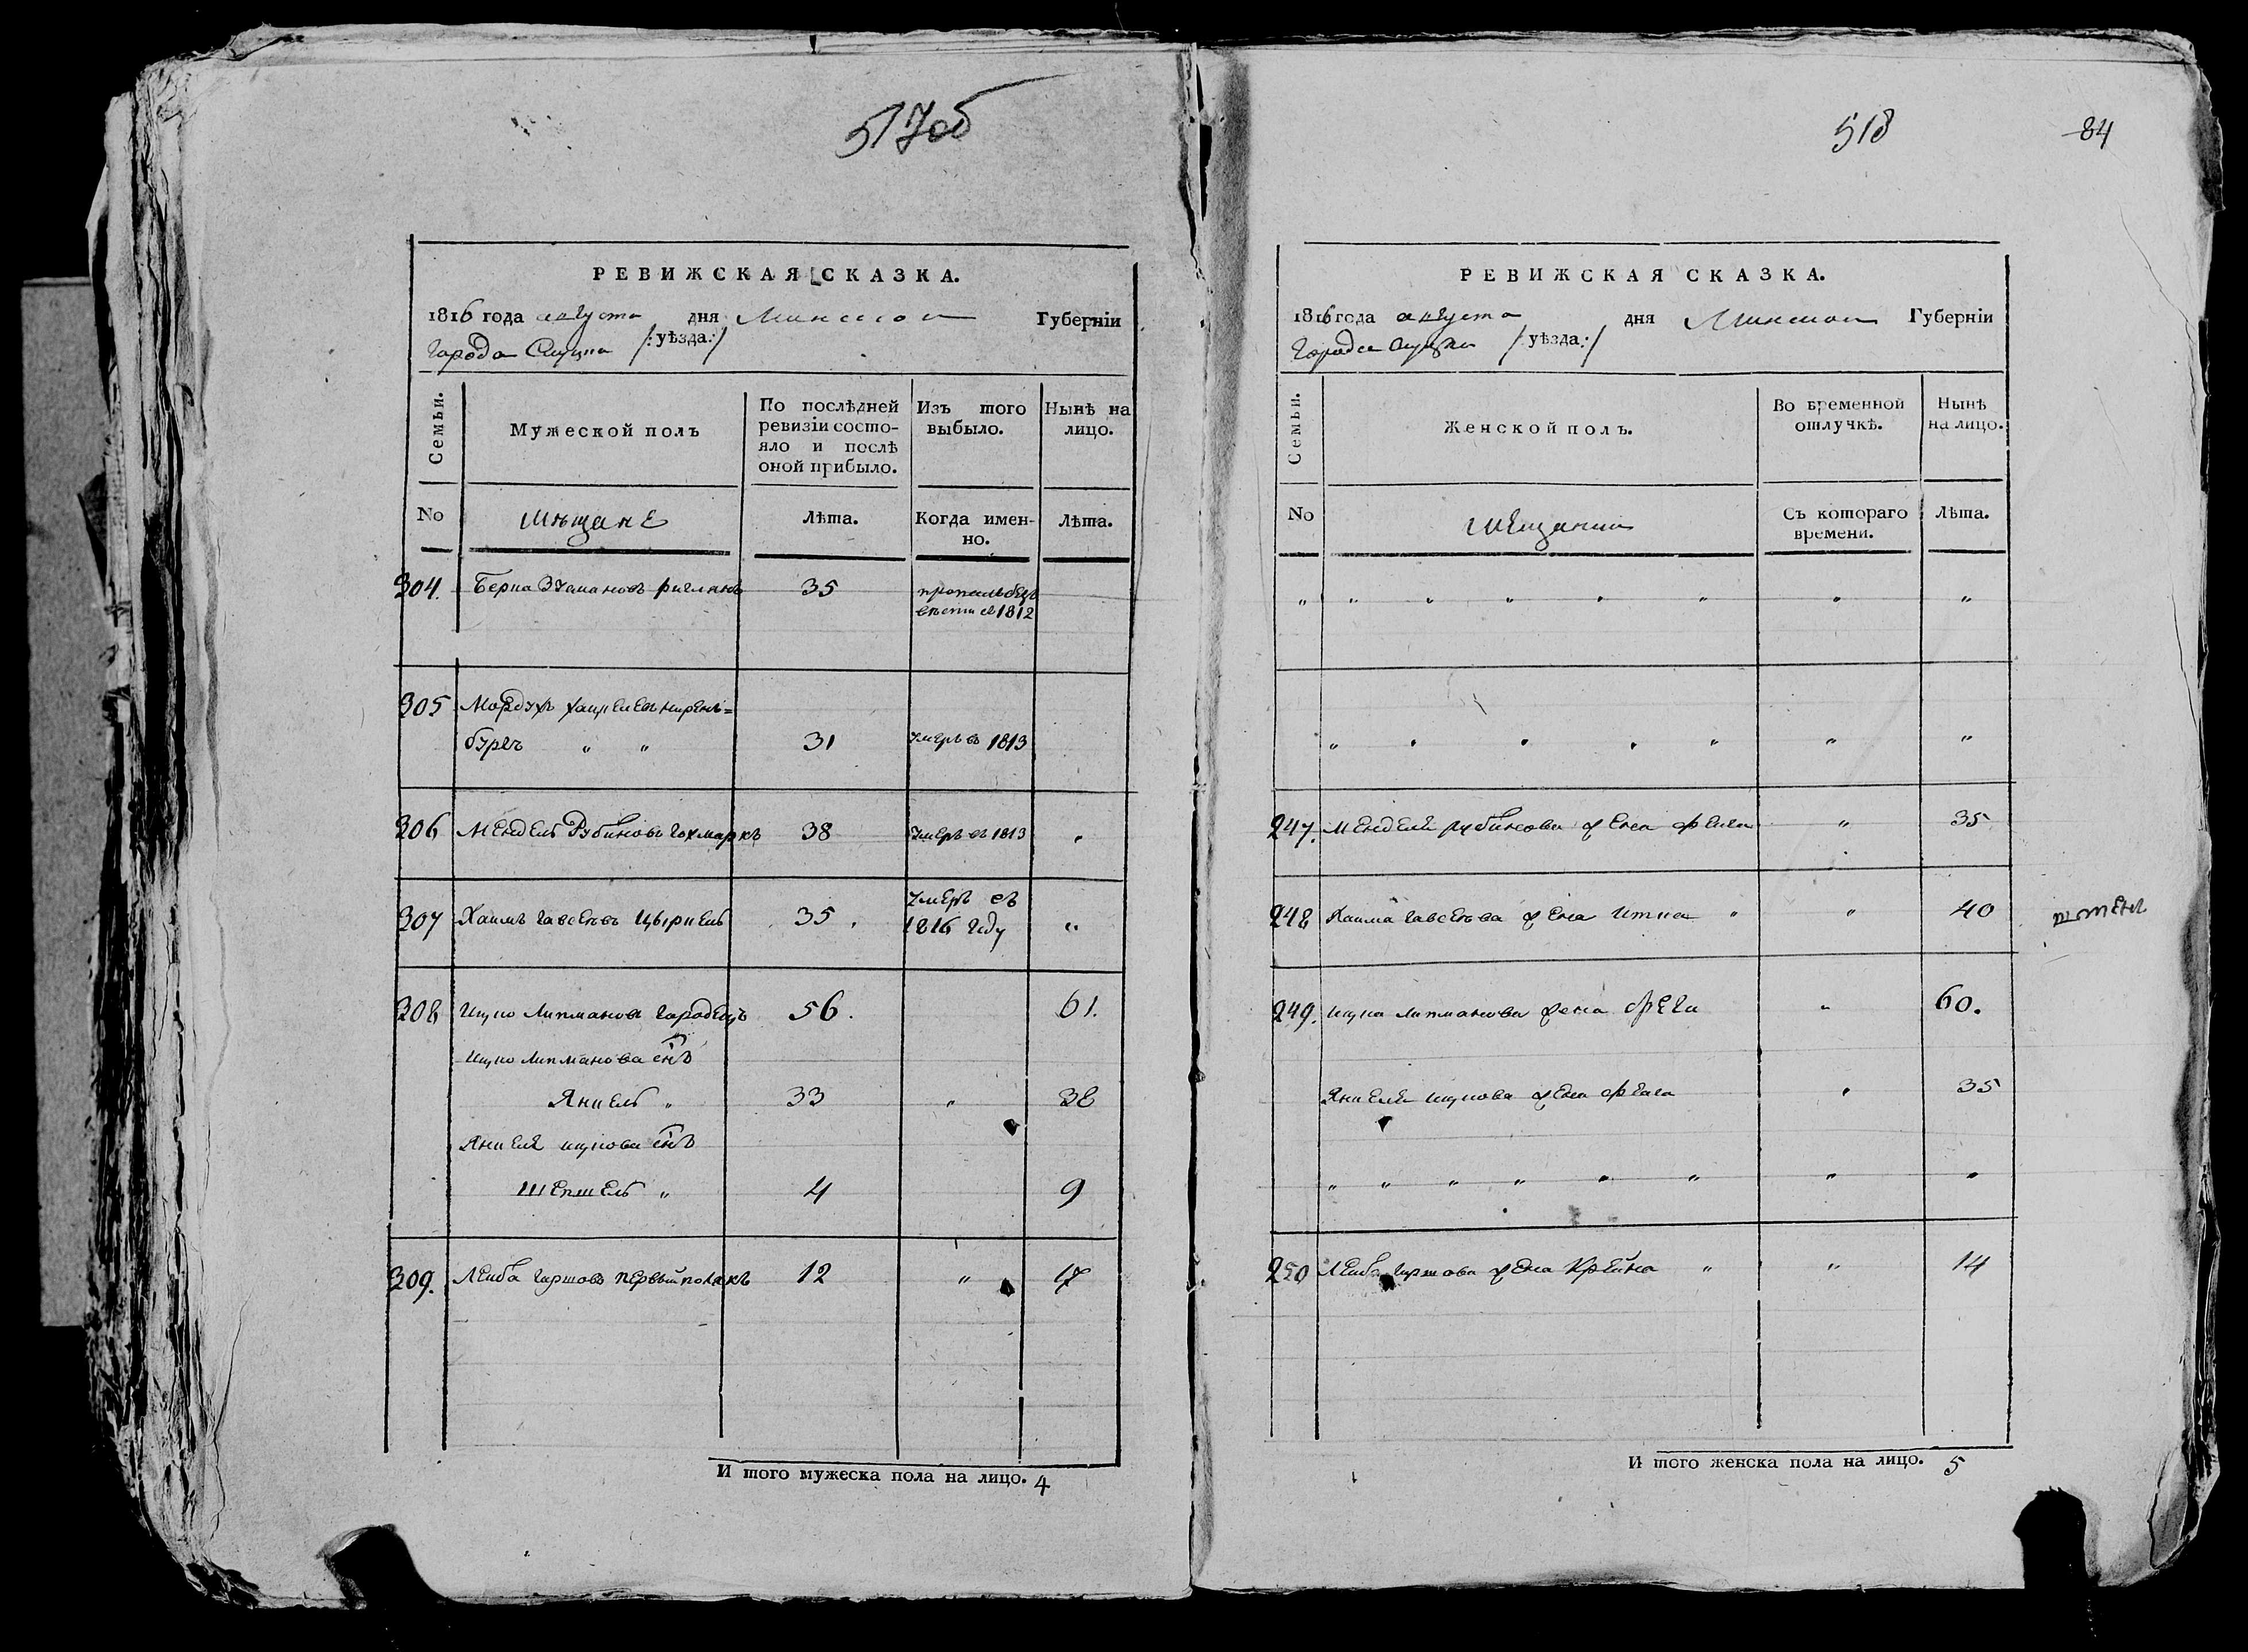 517об
РЕВИЖСКАЯ СКАЗКА.
1816 года августа дня Минской Губерніи
города Слуцка /:уѣзда:/
Семьи.
Мужеской полъ
По послѣдней
ревизіи состо-
яло и послѣ
оной прибыло.
Изъ того
выбыло.
Нынѣ на
лицо.
No
мѣщане
Лѣта.
Когда имен-
но.
Лѣта.
304. Берка 35 пропалъ безъ
вести въ 1812
305 Мордухъ
бургъ " " 31 умеръ въ 1813
306 Мендель Рубиновъ 38 умеръ въ 1813 "
307 Хаимъ 35. умеръ въ
1816 году "
308 Ицко Липмановъ Городецъ 56. 61.
Ицко Липманова снъ
Янкель " 33 " 38
Янкеля ицкова снъ
Шепшель " 4 9
309. Лейба Гиршовъ первый полякъ 12 " 17
И того мужеска пола на лицо. 4
518
84
РЕВИЖСКАЯ СКАЗКА.
1816 года августа дня Минской Губерніи
города Слуцка /:уѣзда:/
Семьи.
Женской полъ.
Во временной
отлучкѣ.
Нынѣ
на лицо.
No
мещанки
Съ котораго
времени.
Лѣта.
" " " " " " " "
" " " " " " "
247. Менделя рубинова жена Фейга " 35
248 Хаима жена Итка " " 40
249. ицка липманова жена " 60.
Янкеля ицкова жена Фейга " 35
" " " " " " " "
250 Лейбы Гиршова жена Крейна " " 14
И того женска пола на лицо. 5